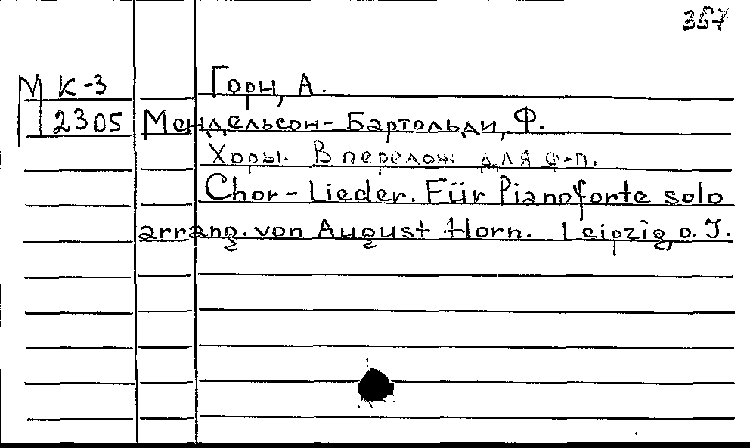 357
М К-3 Горн, А.
2305 Мендельсон-Бартольди, Ф.
Хоры. В перелож. для ф-п.
Chor-Lieder. Für Pianoforte solo
arrang. von August Horn. Leipzig, o. J.